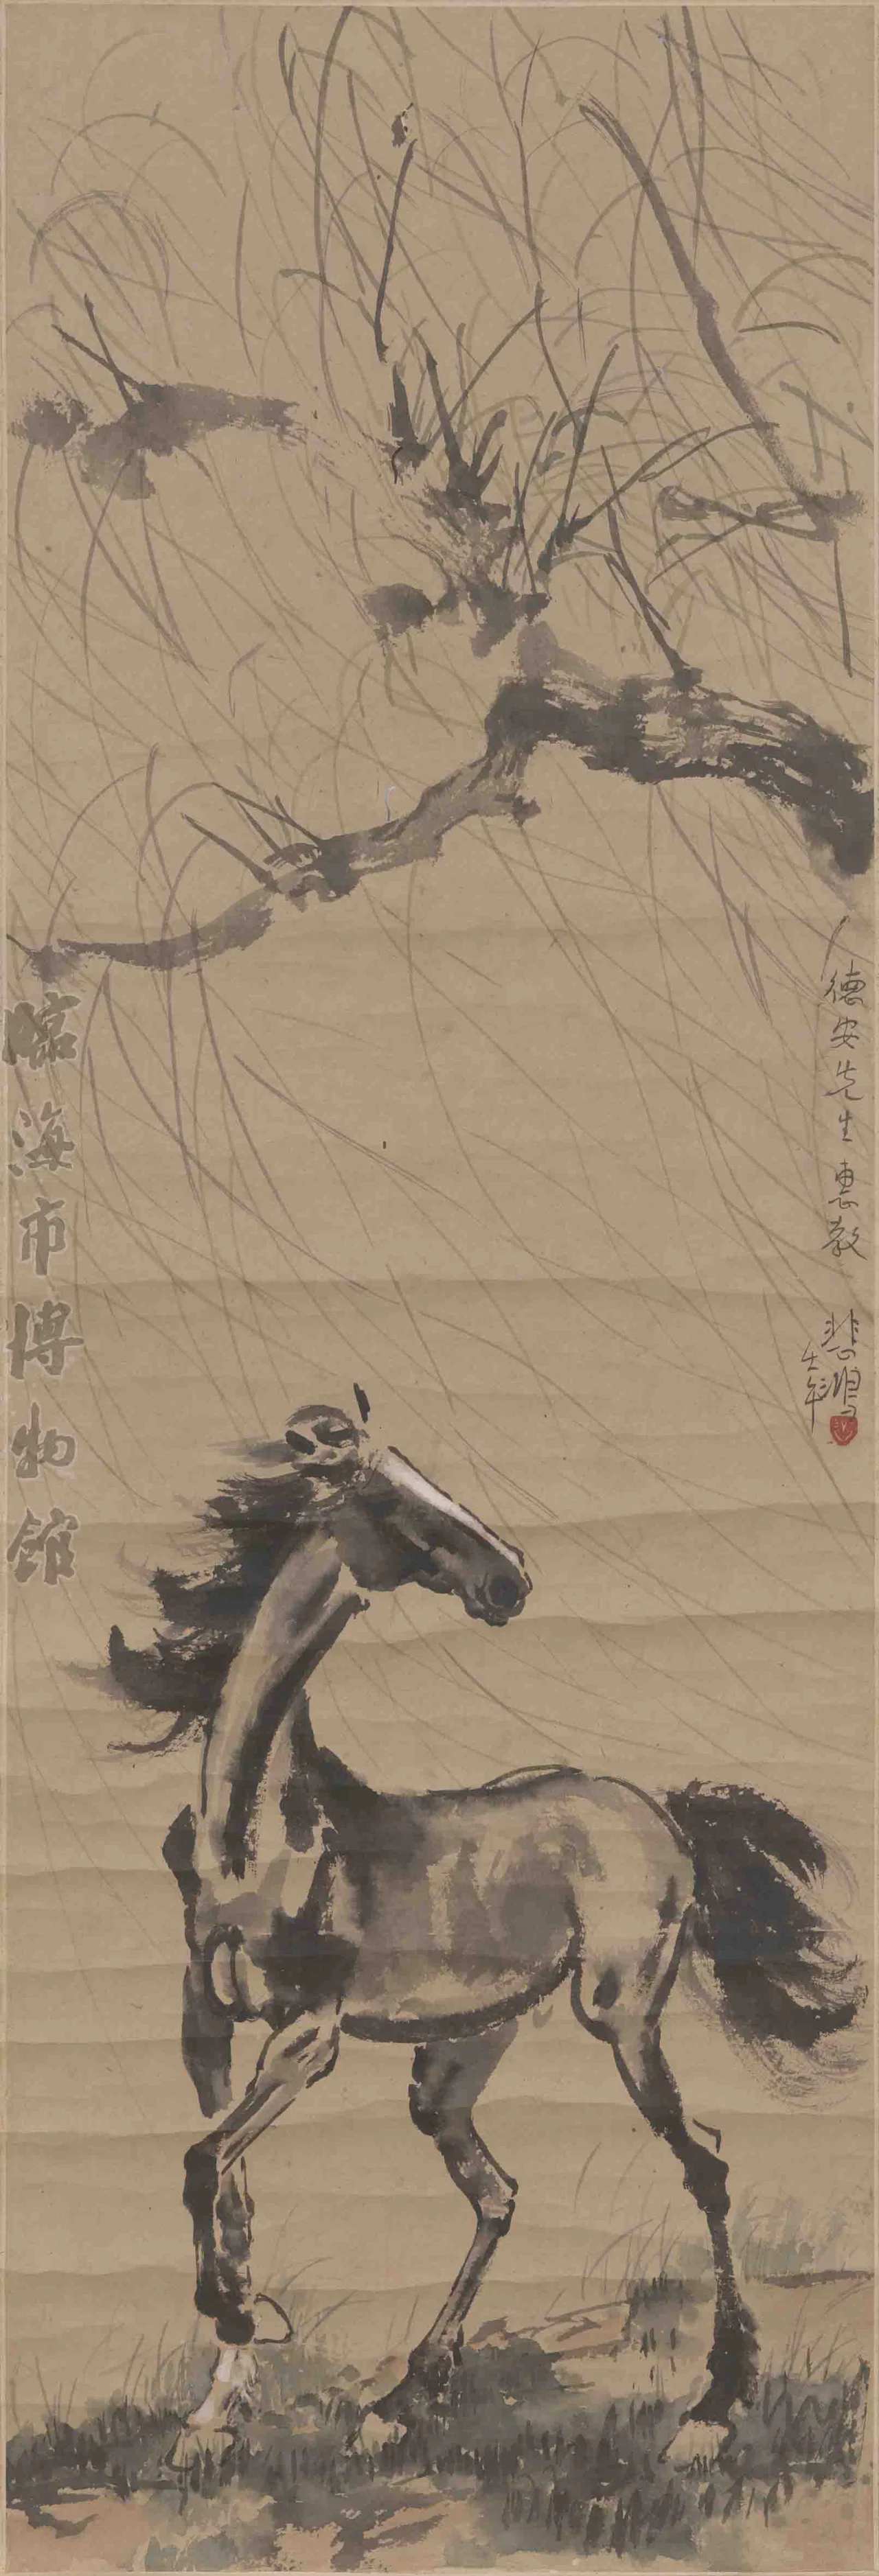 德安先生惠教
悲鸿
壬午
臨海市博物館